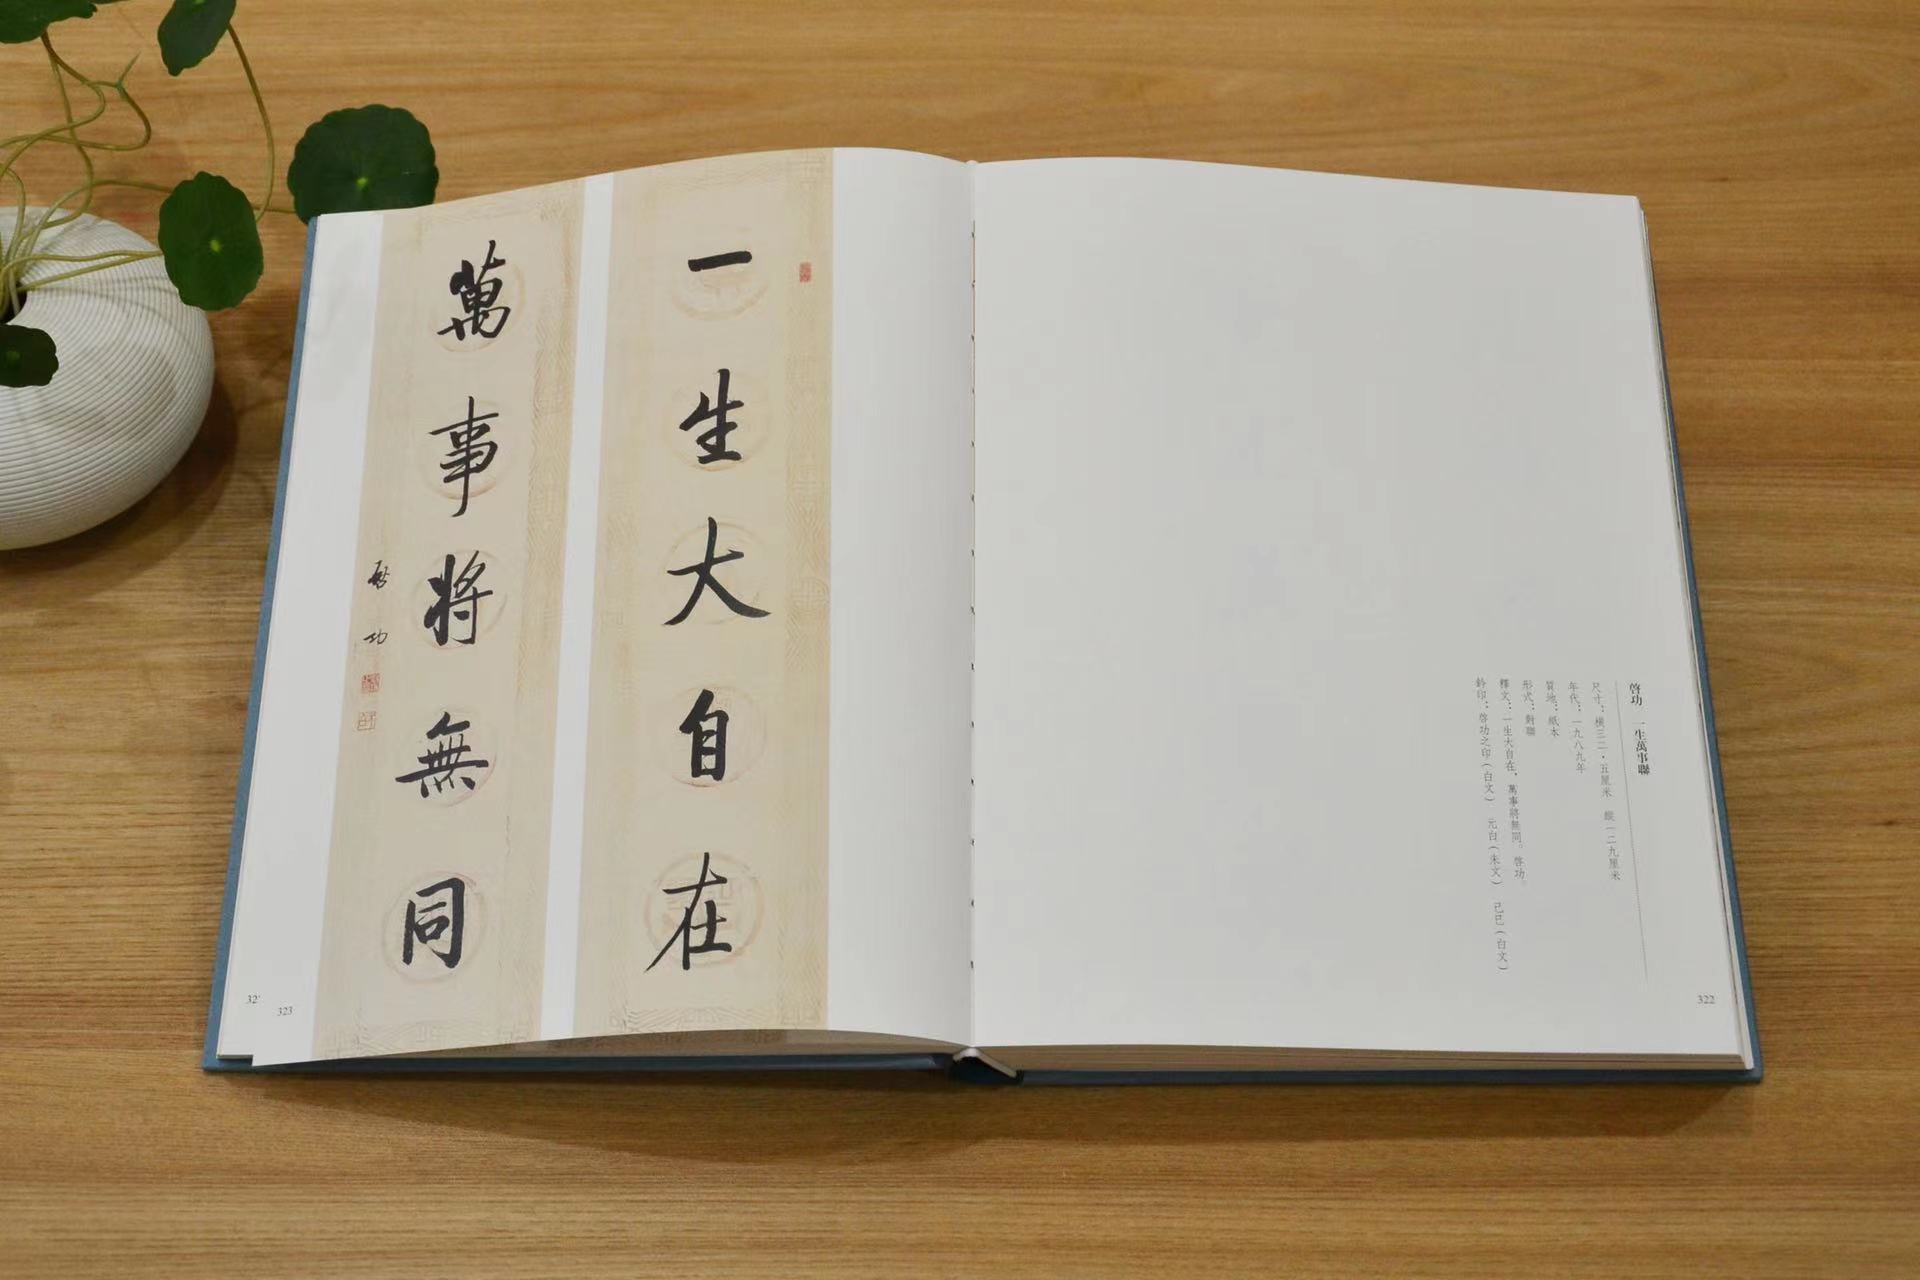 啓功　一生萬事聯
尺寸：橫三二·五厘米　縱一二九厘米
年代：一九八九年
質地：紙本
形式：對聯
釋文：一生大自在，萬事將無同。啓功。
鈐印：啓功之印（白文）　元白（朱文）　己巳（白文）
322
一生大自在
萬事將無同
啟功
323